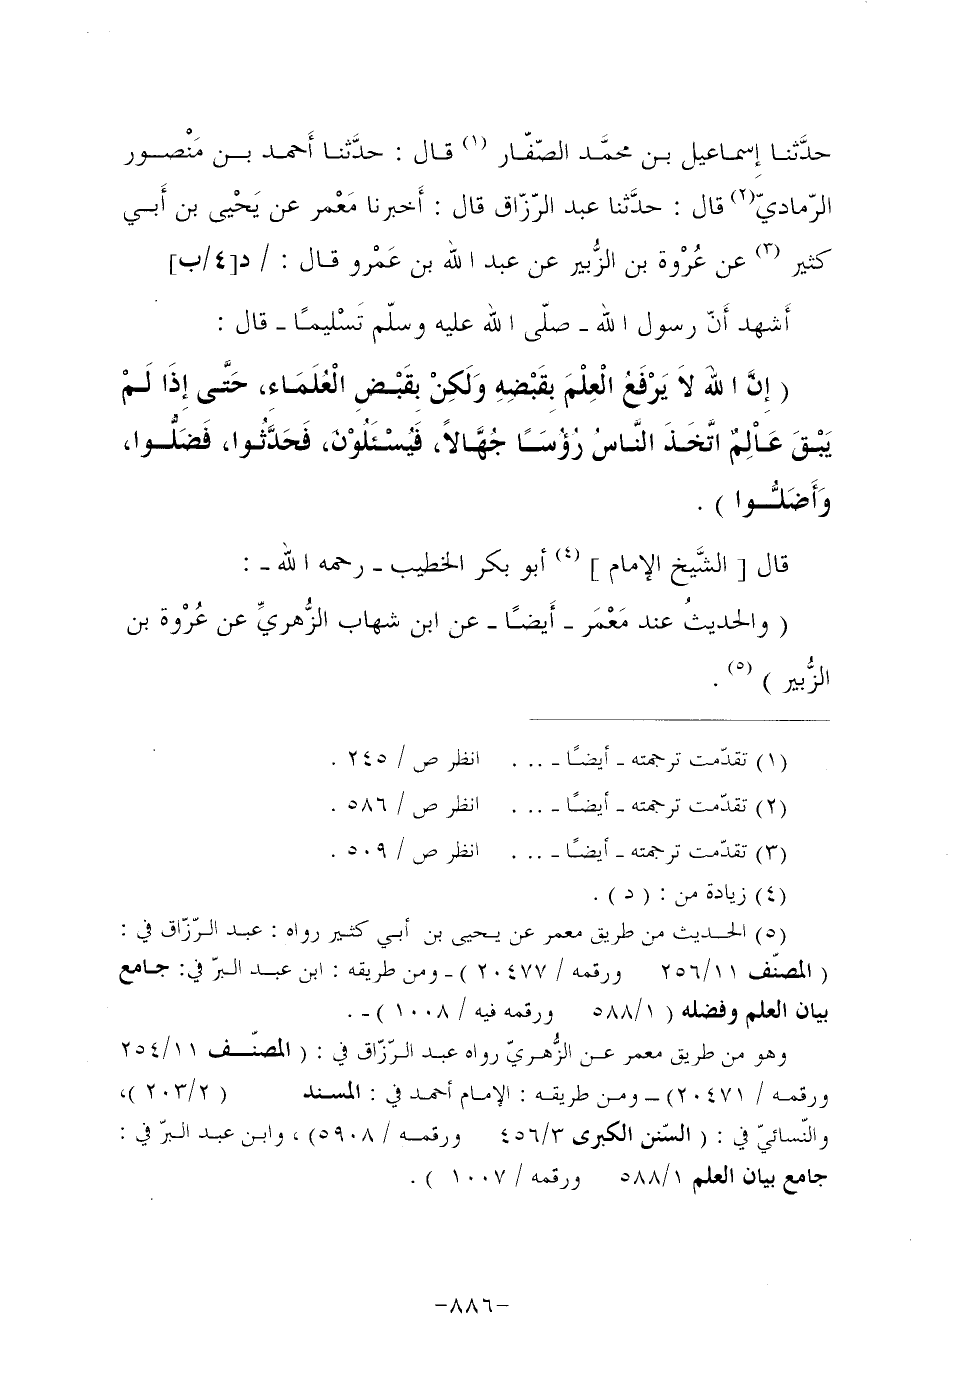 حدَّثنا إسماعيل بن محمَّد الصّفّار (١) قال : حدَّثنا أحمد بن مَنْصور
الرّماديّ(٢) قال : حدَّثنا عبد الرّزّاق قال : أخبرنا مَعْمر عن يَحْيى بن أَبي
كثير (٣) عن عُرْوة بن الزُّبير عن عبد الله بن عَمْرو قال : / د[٤/ب]
أَشهد أَنّ رسول الله ـ صلّى الله عليه وسلّم تَسْليمًا ـ قال :
( إنَّ الله لاَ يَرْفَعُ الْعِلْمَ بِقَبْضِهِ وَلَكِنْ بِقَبْضِ الْعُلَمَاء، حَتَّى إذَا لَمْ
يَبْقَ عَاْلِمٌ اتَّخَذَ النَّاسُ رُؤُسًا جُهَّالاً، فَيُسْئَلُوْنَ، فَحَدَّثُوا، فَضَلُّوا،
وَأَضَلُّوا ) .
قال [ الشَّيخ الإمام ] (٤) أبو بكر الخطيب ـ رحمه الله ـ :
( والحديثُ عند مَعْمَر ـ أَيضًا ـ عن ابن شهاب الزُّهريِّ عن عُرْوة بن
الزُّبير ) (٥) .
(١) تقدّمت ترجمته ـ أيضًا ـ ... انظر ص / ٢٤٥ .
(٢) تقدّمت ترجمته ـ أيضًا ـ ... انظر ص / ٥٨٦ .
(٣) تقدّمت ترجمته ـ أيضًا ـ ... انظر ص / ٥٠٩ .
(٤) زيادة من : ( د ) .
(٥) الحديث من طريق معمر عن يحيى بن أبي كثير رواه : عبد الرّزّاق في :
( المصنّف ٢٥٦/١١ ورقمه / ٢٠٤٧٧ ) ـ ومن طريقه : ابن عبد البرّ في: جامع
بيان العلم وفضله ( ٥٨٨/١ ورقمه فيه / ١٠٠٨ ) ـ .
وهو من طريق معمر عن الزُّهريّ رواه عبد الرّزّاق في : ( المصنّف ٢٥٤/١١
ورقمه / ٢٠٤٧١) ـ ومن طريقه : الإمام أحمد في : المسند ( ٢٠٣/٢ )،
والنّسائيّ في : ( السّنن الكبرى ٤٥٦/٣ ورقمه / ٥٩٠٨) ، وابن عبد البرّ في :
جامع بيان العلم ٥٨٨/١ ورقمه / ١٠٠٧ ) .
-٨٨٦-